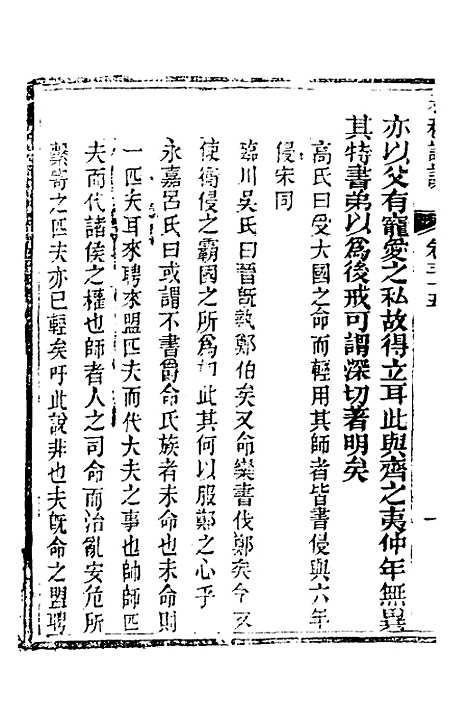 卷三十五
亦以父有寵愛之私故得立耳此與齊之夷仲年無異
其特書弟以為後戒可謂深切著明矣
高氏曰受大國之命而輕用其師者皆書侵與六年
侵宋同
臨川吳氏曰晉旣執鄭伯矣又命欒書伐鄭矣今又
使衛侵之霸國之所為如此其何以服鄭之心乎
永嘉呂氏曰或謂不書爵命氏族者未命也未命則
一匹夫耳來聘來盟匹夫而代大夫之事也帥師匹
夫而代諸侯之權也師者人之司命而治亂安危所
繫寄之匹夫亦已輕矣吁此說非也夫旣命之盟聘